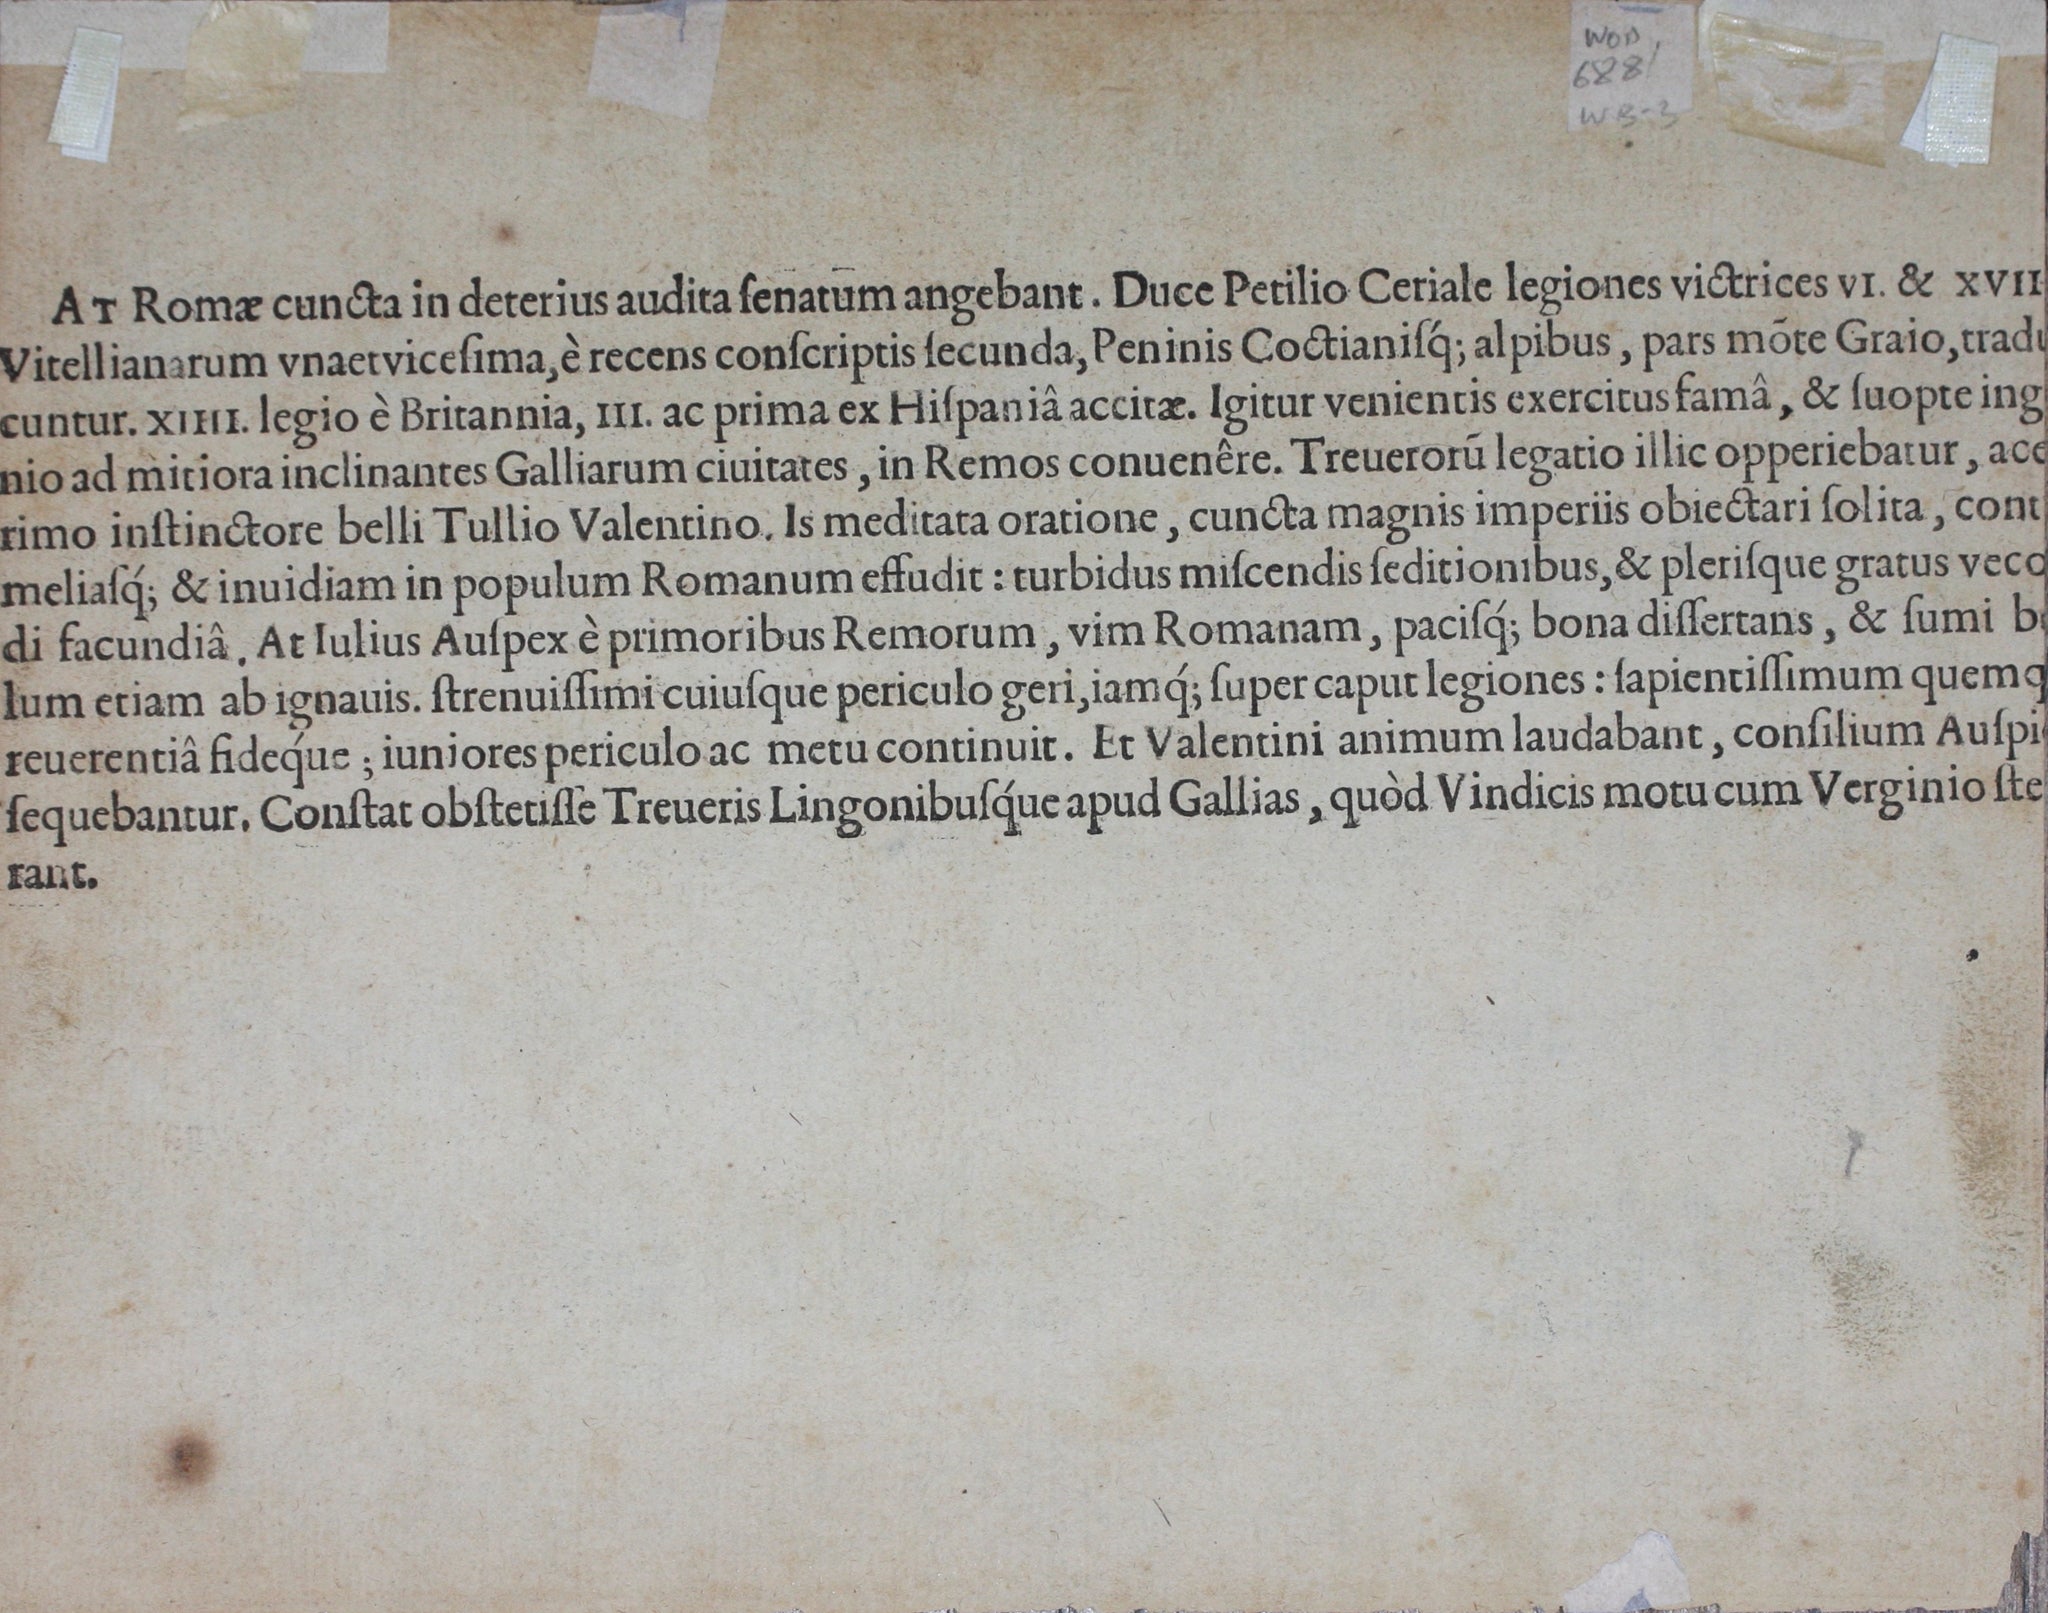 WOD
688
WB-3
AT Romæ cuncta in deterius audita ſenatum angebant. Duce Petilio Ceriale legiones victrices VI. & XVII
Vitellianarum vnaetviceſima, è recens conſcriptis ſecunda, Peninis Coctianiſq́; alpibus, pars mōte Graio, tradu
cuntur. XIIII. legio è Britannia, III. ac prima ex Hiſpaniâ accitæ. Igitur venientis exercitus famâ, & ſuopte ing
nio ad mitiora inclinantes Galliarum ciuitates, in Remos conuenêre. Treuerorū legatio illic opperiebatur, ace
rimo inſtinctore belli Tullio Valentino. Is meditata oratione, cuncta magnis imperiis obiectari ſolita, cont
meliaſq́; & inuidiam in populum Romanum effudit: turbidus miſcendis ſeditionibus, & pleriſque gratus veco
di facundiâ. At Iulius Auſpex è primoribus Remorum, vim Romanam, paciſq́; bona diſſertans, & ſumi be
lum etiam ab ignauis. ſtrenuiſſimi cuiuſque periculo geri, iamq́; ſuper caput legiones: ſapientiſſimum quemq
reuerentiâ fideq́ue; iuniores periculo ac metu continuit. Et Valentini animum laudabant, conſilium Auſpi
ſequebantur. Conſtat obſtetiſſe Treueris Lingonibuſq́ue apud Gallias, quòd Vindicis motu cum Verginio ſte
rant.